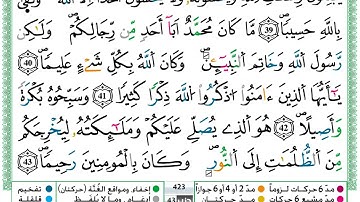 أَحَدًا إِلَّا اللَّهَ وَكَفَىٰ
بِاللَّهِ حَسِيبًا ۝39 مَّا كَانَ مُحَمَّدٌ أَبَآ أَحَدٍ مِّن رِّجَالِكُمْ وَلَٰكِن
رَّسُولَ اللَّهِ وَخَاتَمَ النَّبِيِّـۧنَ ۗ وَكَانَ اللَّهُ بِكُلِّ شَيْءٍ عَلِيمًا ۝40
يَٰٓأَيُّهَا الَّذِينَ ءَامَنُوا اذْكُرُوا اللَّهَ ذِكْرًا كَثِيرًا ۝41 وَسَبِّحُوهُ بُكْرَةً
وَأَصِيلًا ۝42 هُوَ الَّذِي يُصَلِّي عَلَيْكُمْ وَمَلَٰٓئِكَتُهُ لِيُخْرِجَكُم
مِّنَ الظُّلُمَٰتِ إِلَى النُّورِ ۚ وَكَانَ بِالْمُؤْمِنِينَ رَحِيمًا ۝43
مدّ 6 حركات لزوماً مدّ 2 أو 4 أو 6 جوازاً 423 إخفاء، ومواقع الغُنَّة (حركتان) تفخيم
مدّ مشبع 6 حركات مدّ حركتان إدغام، وما لا يُلفَظ قلقلة